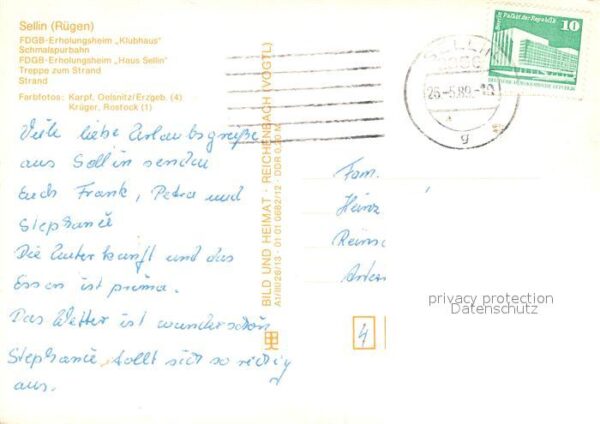 Sellin (Rügen)
FDGB-Erholungsheim „Klubhaus"
Schmalspurbahn
FDGB-Erholungsheim „Haus Sellin"
Treppe zum Strand
Strand
Farbfotos: Karpf, Oelsnitz/Erzgeb. (4)
Krüger, Rostock (1)
Viele liebe Urlaubsgrüße
aus Sellin senden
Euch Frank, Petra und
Stephanie
Die Unterkunft und das
Essen ist prima.
Das Wetter ist wunderschön
Stephanie, tollt sich so richtig
aus.
BILD UND HEIMAT · REICHENBACH (VOGTL)
A1/III/26/13 · 01 01 0682/12 · DDR
SELLIN
26.-5.89.-10
g
Berlin Palast der Republik
10
Fam.
Heinz
4
privacy protection
Datenschutz